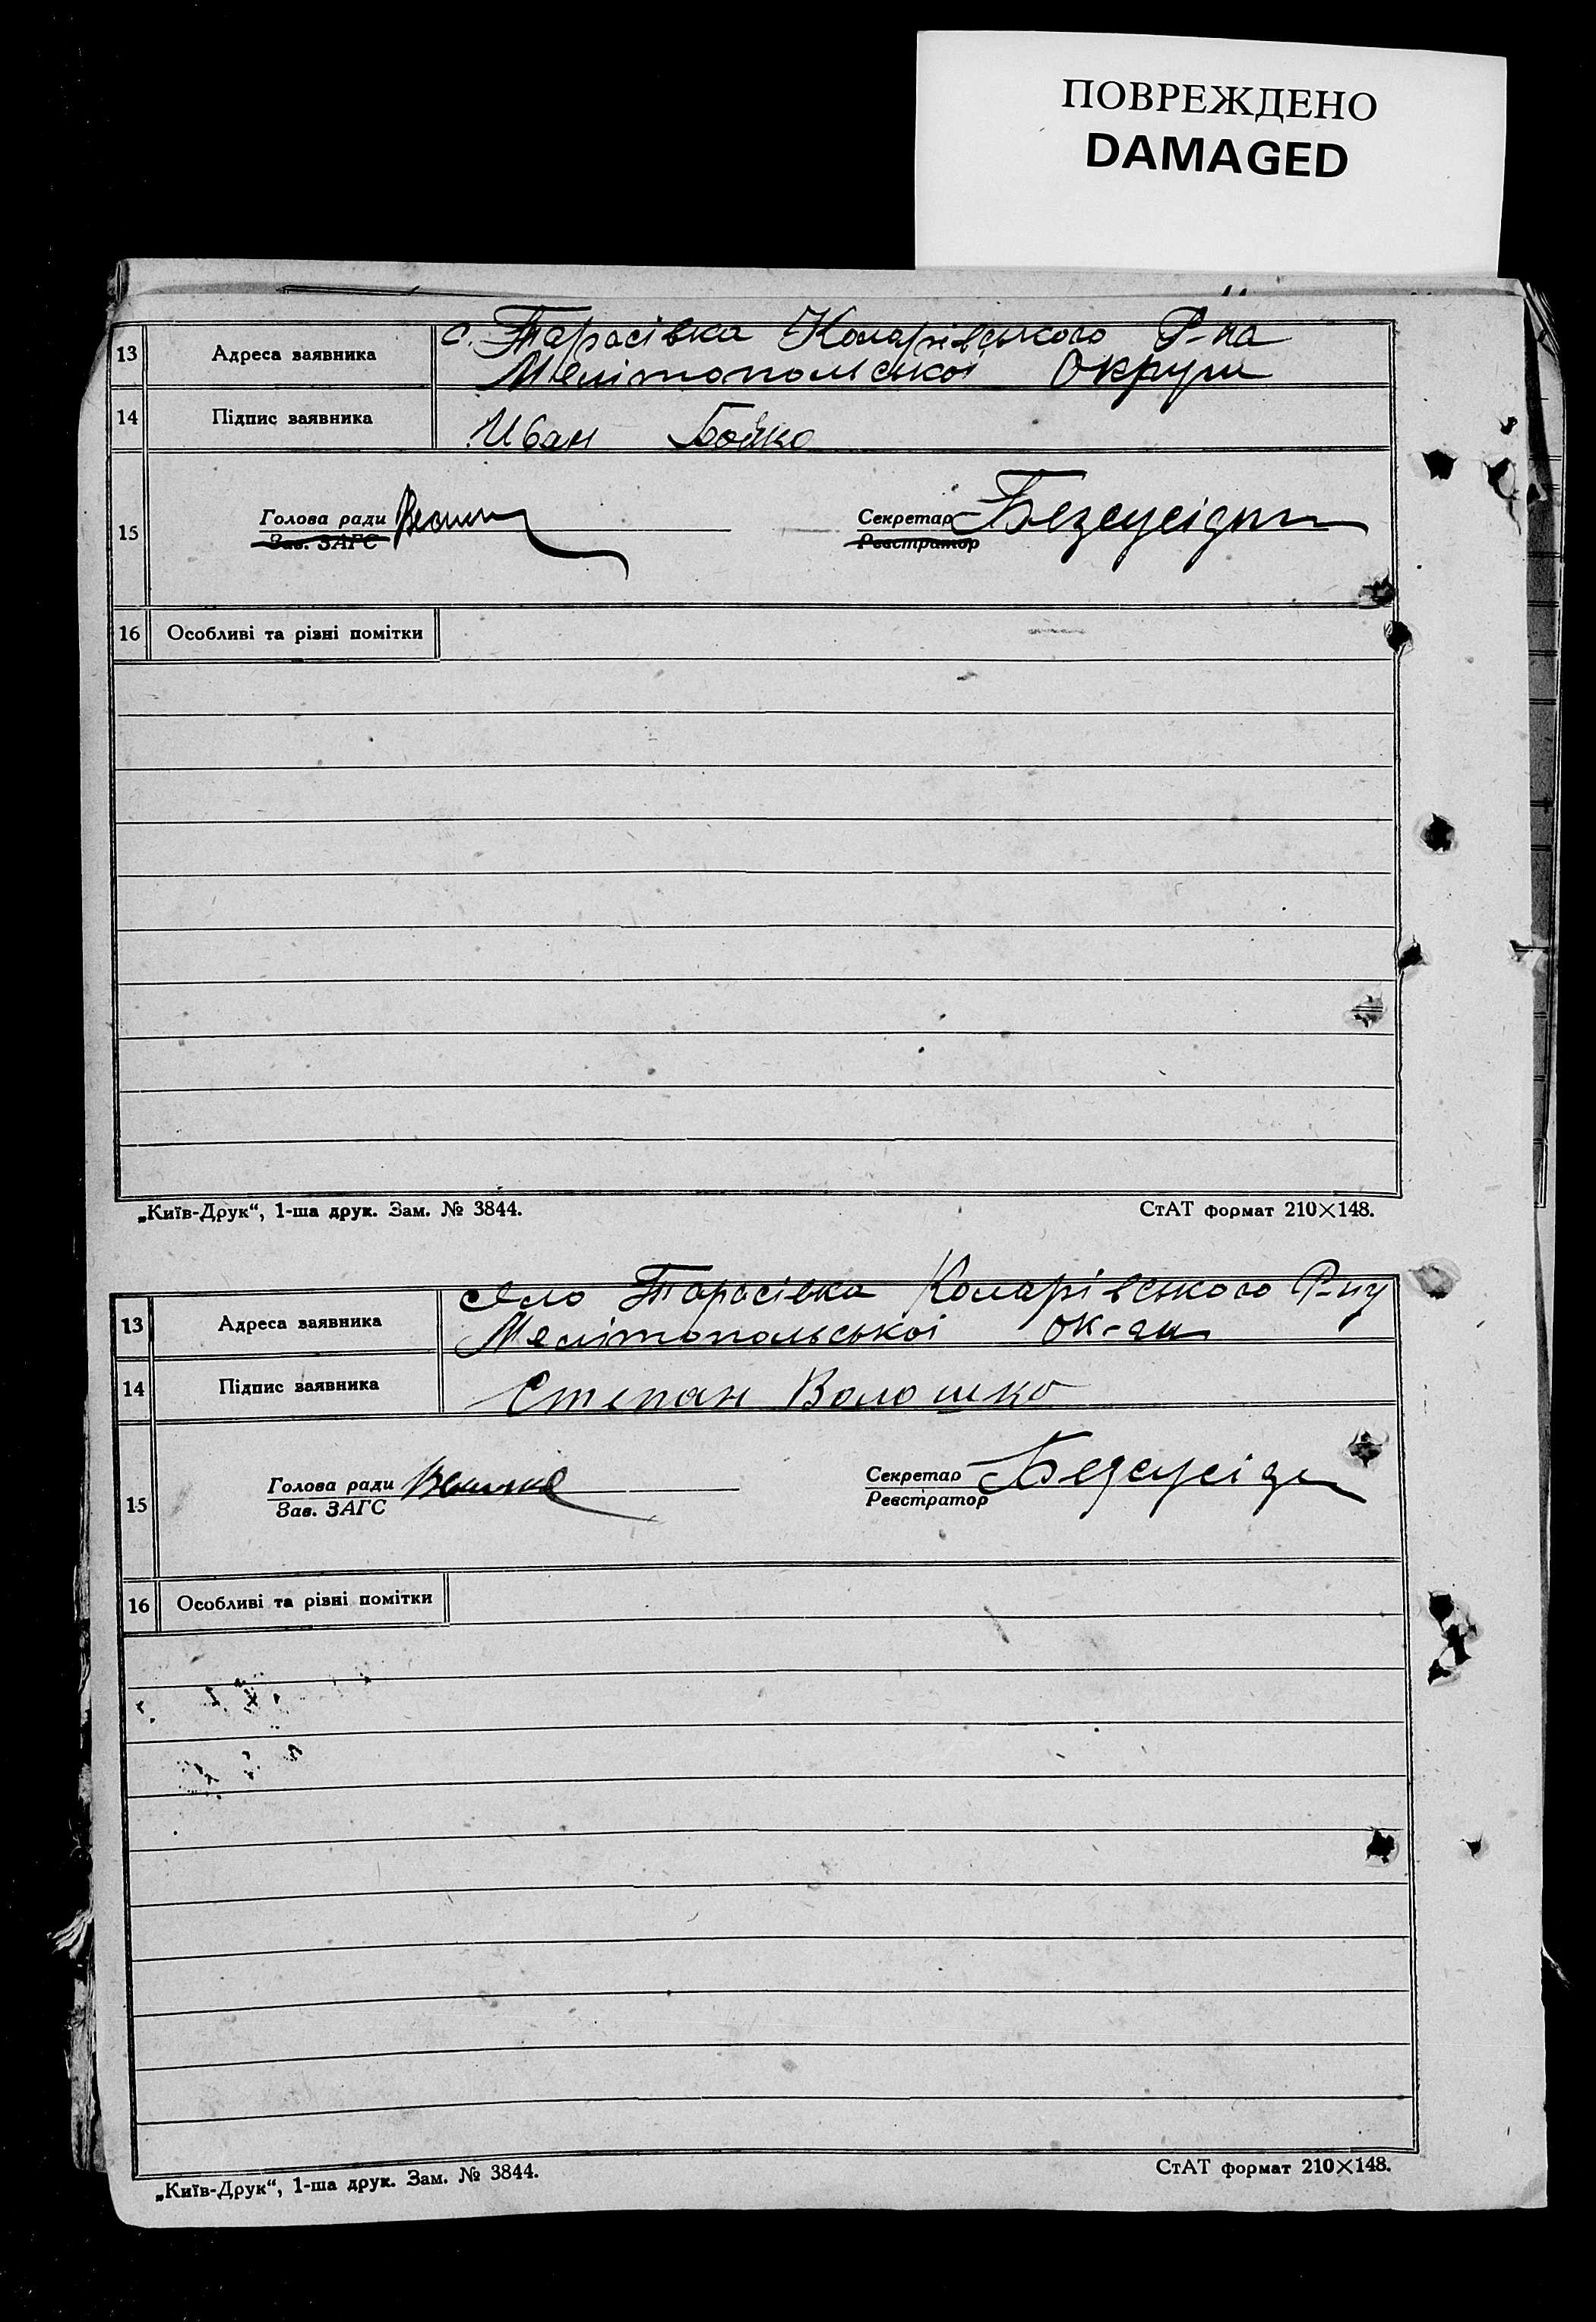 ПОВРЕЖДЕНО
DAMAGED
13 Адреса заявника с. Тарасівка Коларівського Р-на
Мелітопольської Округи
14 Підпис заявника Иван Бойко
15 Голова ради Секретар
Зав. ЗАГС Реєстратор
16 Особливі та різні помітки
„Київ-Друк“, 1-ша друк. Зам. № 3844. СтАТ формат 210×148.
13 Адреса заявника село Тарасівка Коларівського Р-ну
Мелітопольскоі ок-ги
14 Підпис заявника Степан Волошко
15 Голова ради Секретар
Зав. ЗАГС Реєстратор
16 Особливі та різні помітки
„Київ-Друк“, 1-ша друк. Зам. № 3844. СтАТ формат 210×148.